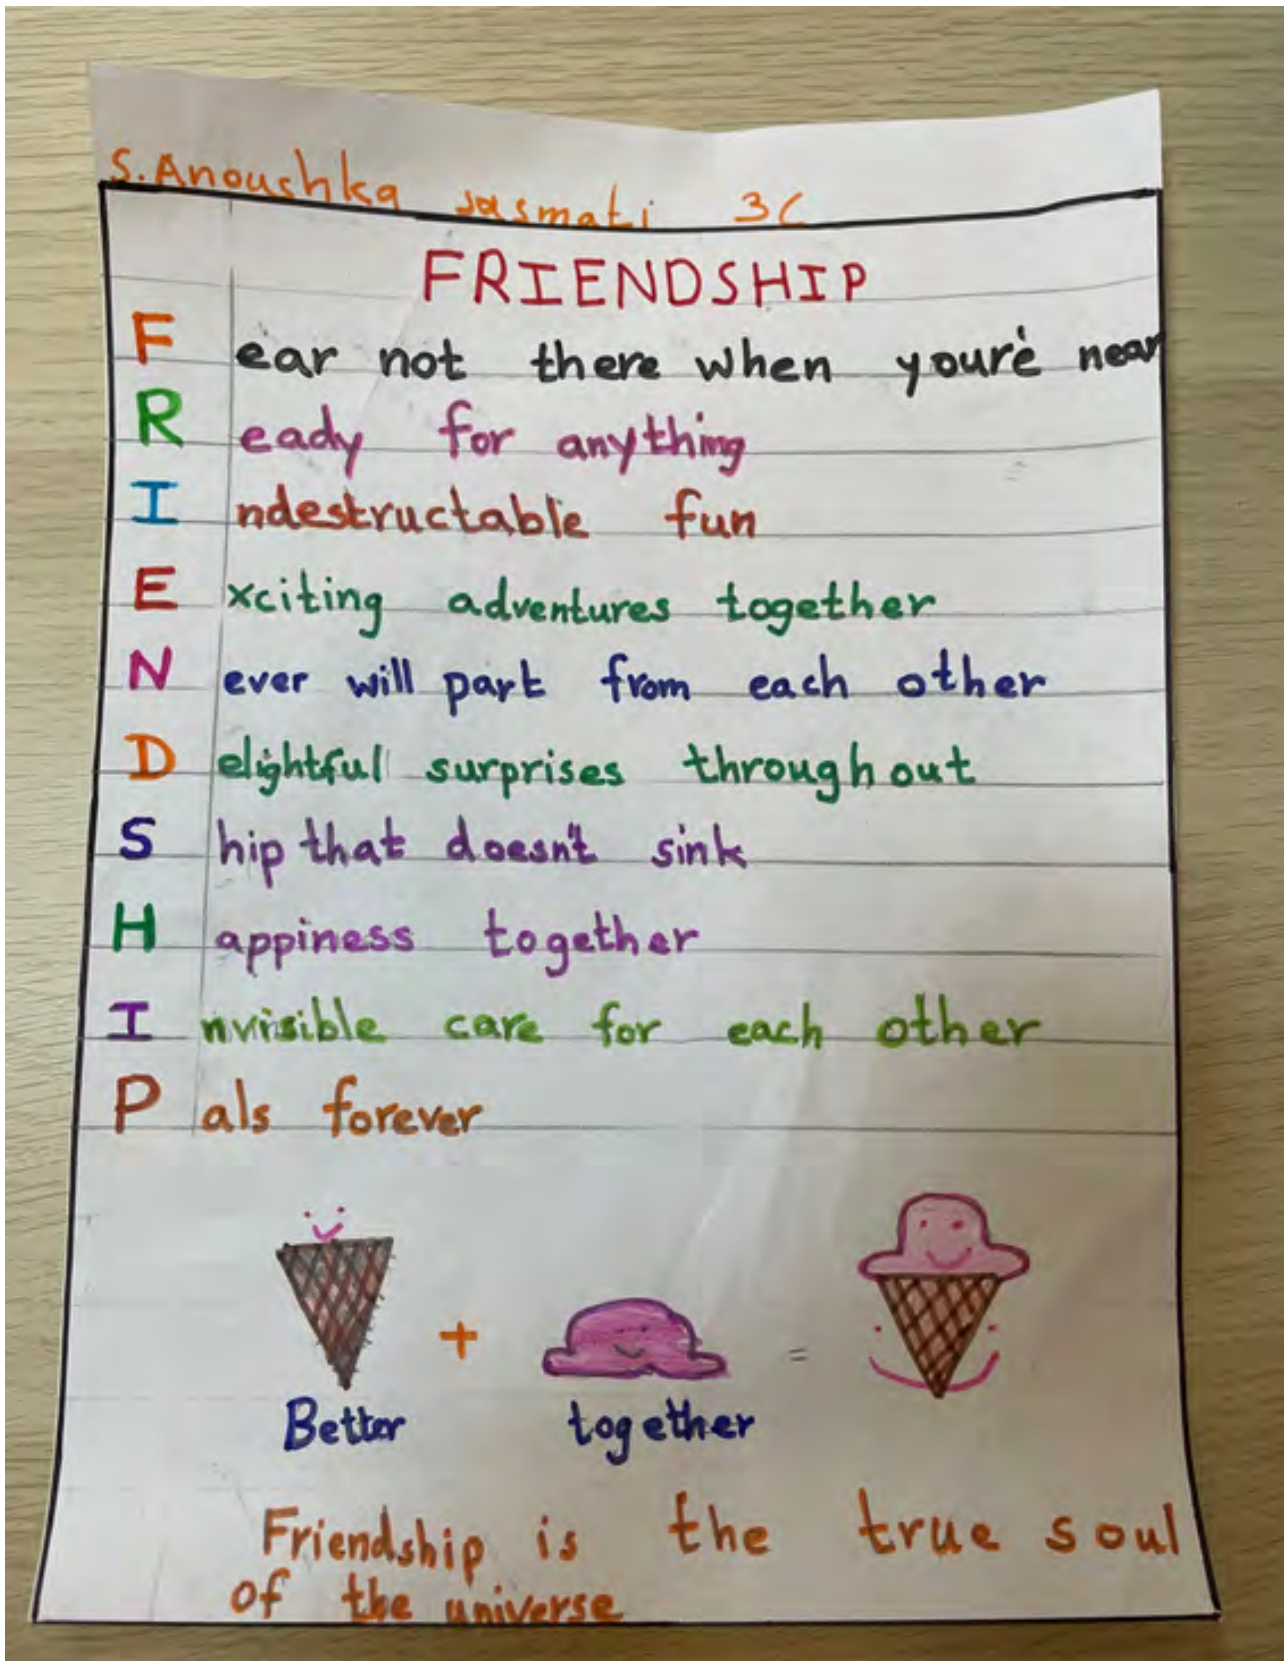 S. Anoushka Jasmati 3C
FRIENDSHIP
Fear not there when youre' near
Ready for anything
Indestructable fun
Exciting adventures together
Never will part from each other
Delightful surprises throughout
Ship that doesn't sink
Happiness together
Invisible care for each other
Pals forever
+ =
Better together
Friendship is the true soul
of the universe